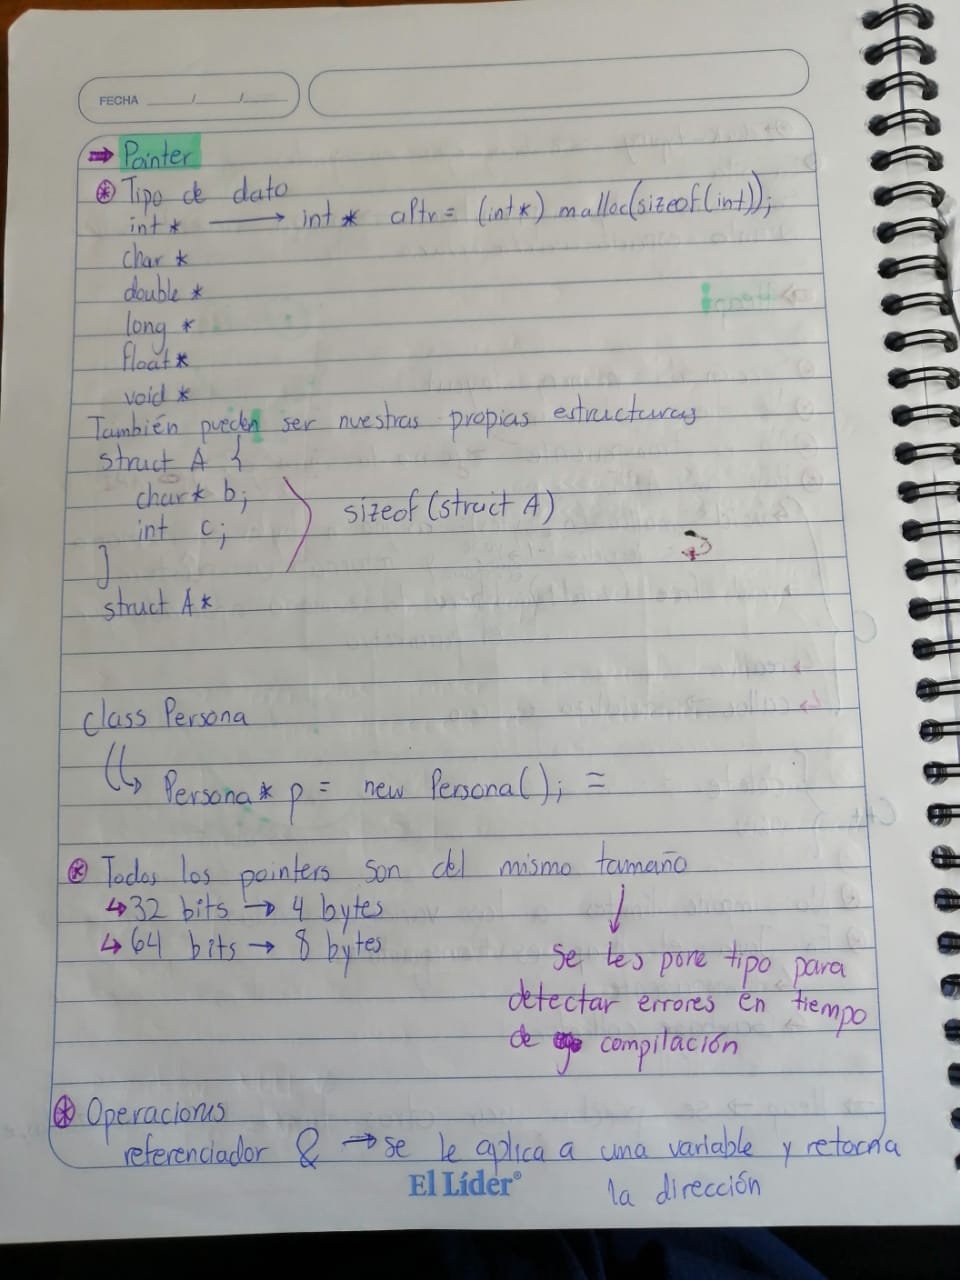 FECHA ____/____/____
⇒ Pointer
⊛ Tipo de dato
int * ⟶ int * aptr = (int*) malloc(sizeof(int));
char *
double *
long *
float *
void *
También pueden ser nuestras propias estructuras
struct A {
char* b;
int c;
sizeof(struct A)
}
struct A*
class Persona
↳ Persona* p = new Persona(); =
⊛ Todos los pointers son del mismo tamaño
↳ 32 bits → 4 bytes
↳ 64 bits → 8 bytes
↓
Se les pone tipo para
detectar errores en tiempo
de compilación
⊛ Operaciones
referenciador & → se le aplica a una variable y retorna
la dirección
El Líder®